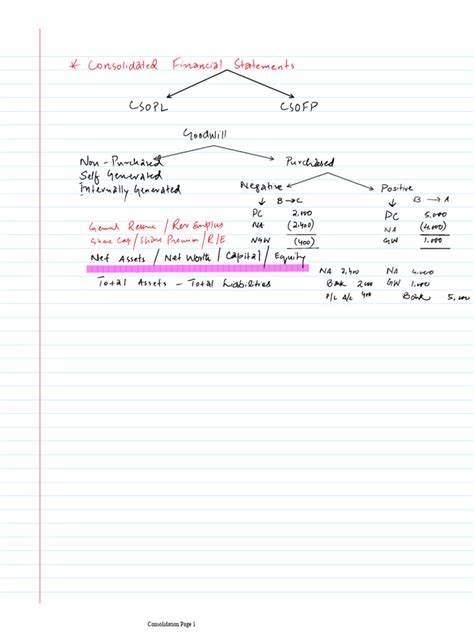 * Consolidated Financial Statements
CSOPL CSOFP
Goodwill
Non-Purchased Purchased
Self Generated
Internally Generated
Negative Positive
B → C B → A
PC 2,000 PC 5,000
NA (2,400) NA (4,000)
NGW (400) GW 1,000
General Reserve / Rev Surplus
Share Cap / Share Premium / R/E
Net Assets / Net Worth / Capital / Equity
Total Assets - Total Liabilities
NA 2,400 NA 4,000
Bank 2000 GW 1,000
P/L A/C 400 Bank 5,000
Consolidation Page 1